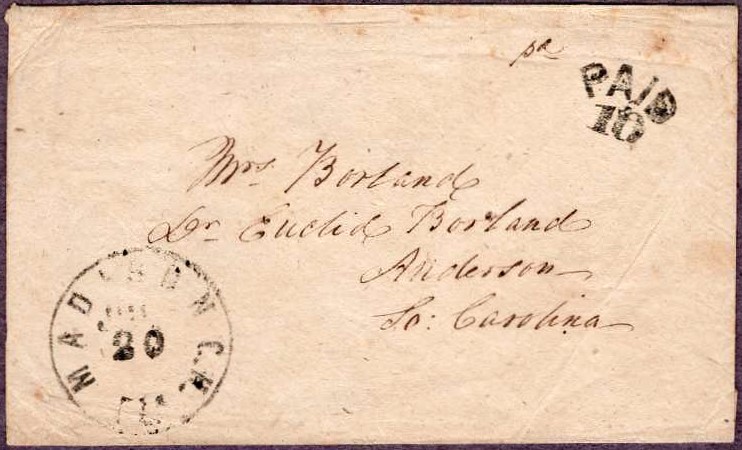 pd
PAID
10
Mrs. Borland
Dr Euclid Borland
Anderson
So: Carolina
MADISON C.H.
20
FLA